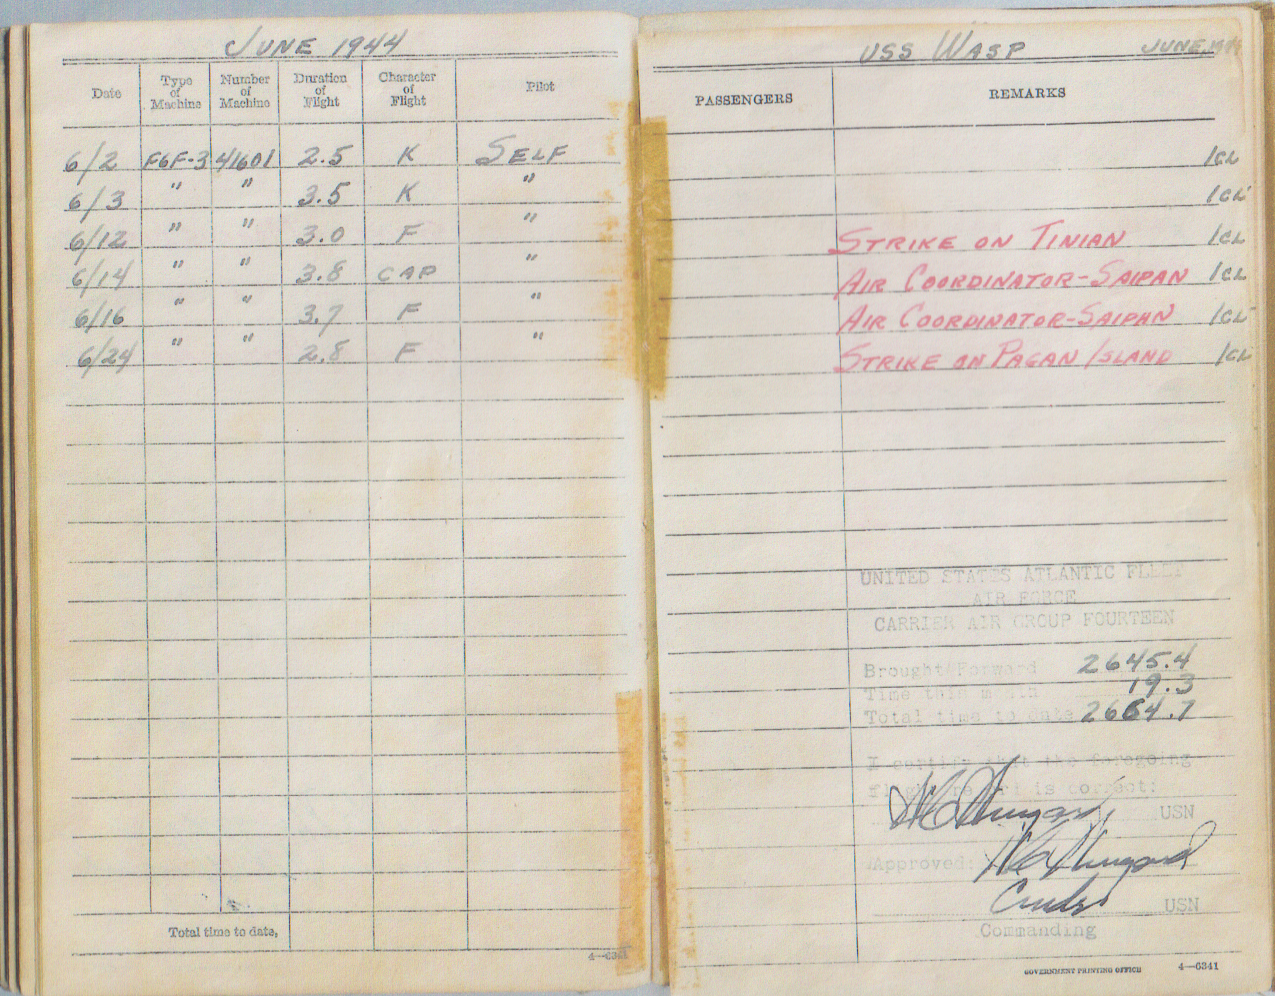 JUNE 1944
Date Type of Machine Number of Machine Duration of Flight Character of Flight Pilot
6/2 F6F-3 41601 2.5 K SELF
6/3 " " 3.5 K "
6/12 " " 3.0 F "
6/14 " " 3.8 CAP "
6/16 " " 3.7 F "
6/24 " " 2.8 F "
Total time to date,
4—6341
USS WASP JUNE, 1944
PASSENGERS REMARKS
1CL
1CL
STRIKE ON TINIAN 1CL
AIR COORDINATOR-SAIPAN 1CL
AIR COORDINATOR-SAIPAN 1CL
STRIKE ON PAGAN ISLAND 1CL
UNITED STATES ATLANTIC FLEET
AIR FORCE
CARRIER AIR GROUP FOURTEEN
Brought Forward 2645.4
Time this month 19.3
Total time to date 2664.7
I certify that the foregoing
flight record is correct:
USN
Approved:
Cmdr. USN
Commanding
GOVERNMENT PRINTING OFFICE 4—6341